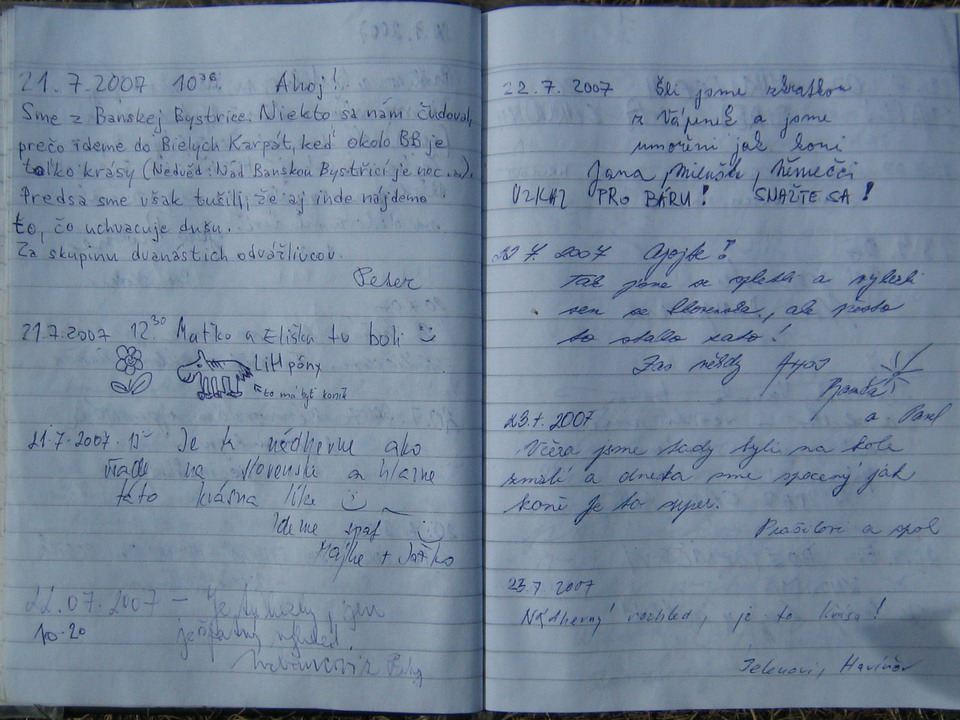 21.7.2007 10³⁶ Ahoj!
Sme z Banskej Bystrice. Niekto sa nám čudoval,
prečo ideme do Bielych Karpát, keď okolo BB je
toľko krásy (Nedvěd: Nad Banskou Bystřicí je noc...).
Predsa sme však tušili, že aj inde nájdeme
to, čo uchvacuje dušu.
Za skupinu dvanástich odvážlivcov
Peter
21.7.2007 12³⁰ Maťko a Eliška tu boli
LiHpóny
to má byť koník
21.7.2007 Je tu nádherne ako
všade na Slovensku a hlavne
táto krásna lúka
Ideme spať
Majka + Jaťko
22.07.2007 — Je tu hezky, jen
10-20 je špatný výhled.
22.7.2007 Šli jsme zkratkou
z Vápenek a jsme
umoření jak koni
Jana, Miluška, Němečci
VZKAZ PRO BÁRU! SNAŽTE SA!
22.7.2007 Ajojte!
Tak jsme se spletli a vylezli
sem ze Slovenska, ale přesto
to stálo zato!
Zas někdy AHOJ
a Pavel
23.7.2007
Včera jsme tady byli na kole
zmrzlí a dneska sme spocený jak
koně je to super.
Prašilovi a spol
23.7.2007
Nádherný rozhled, je to krása!